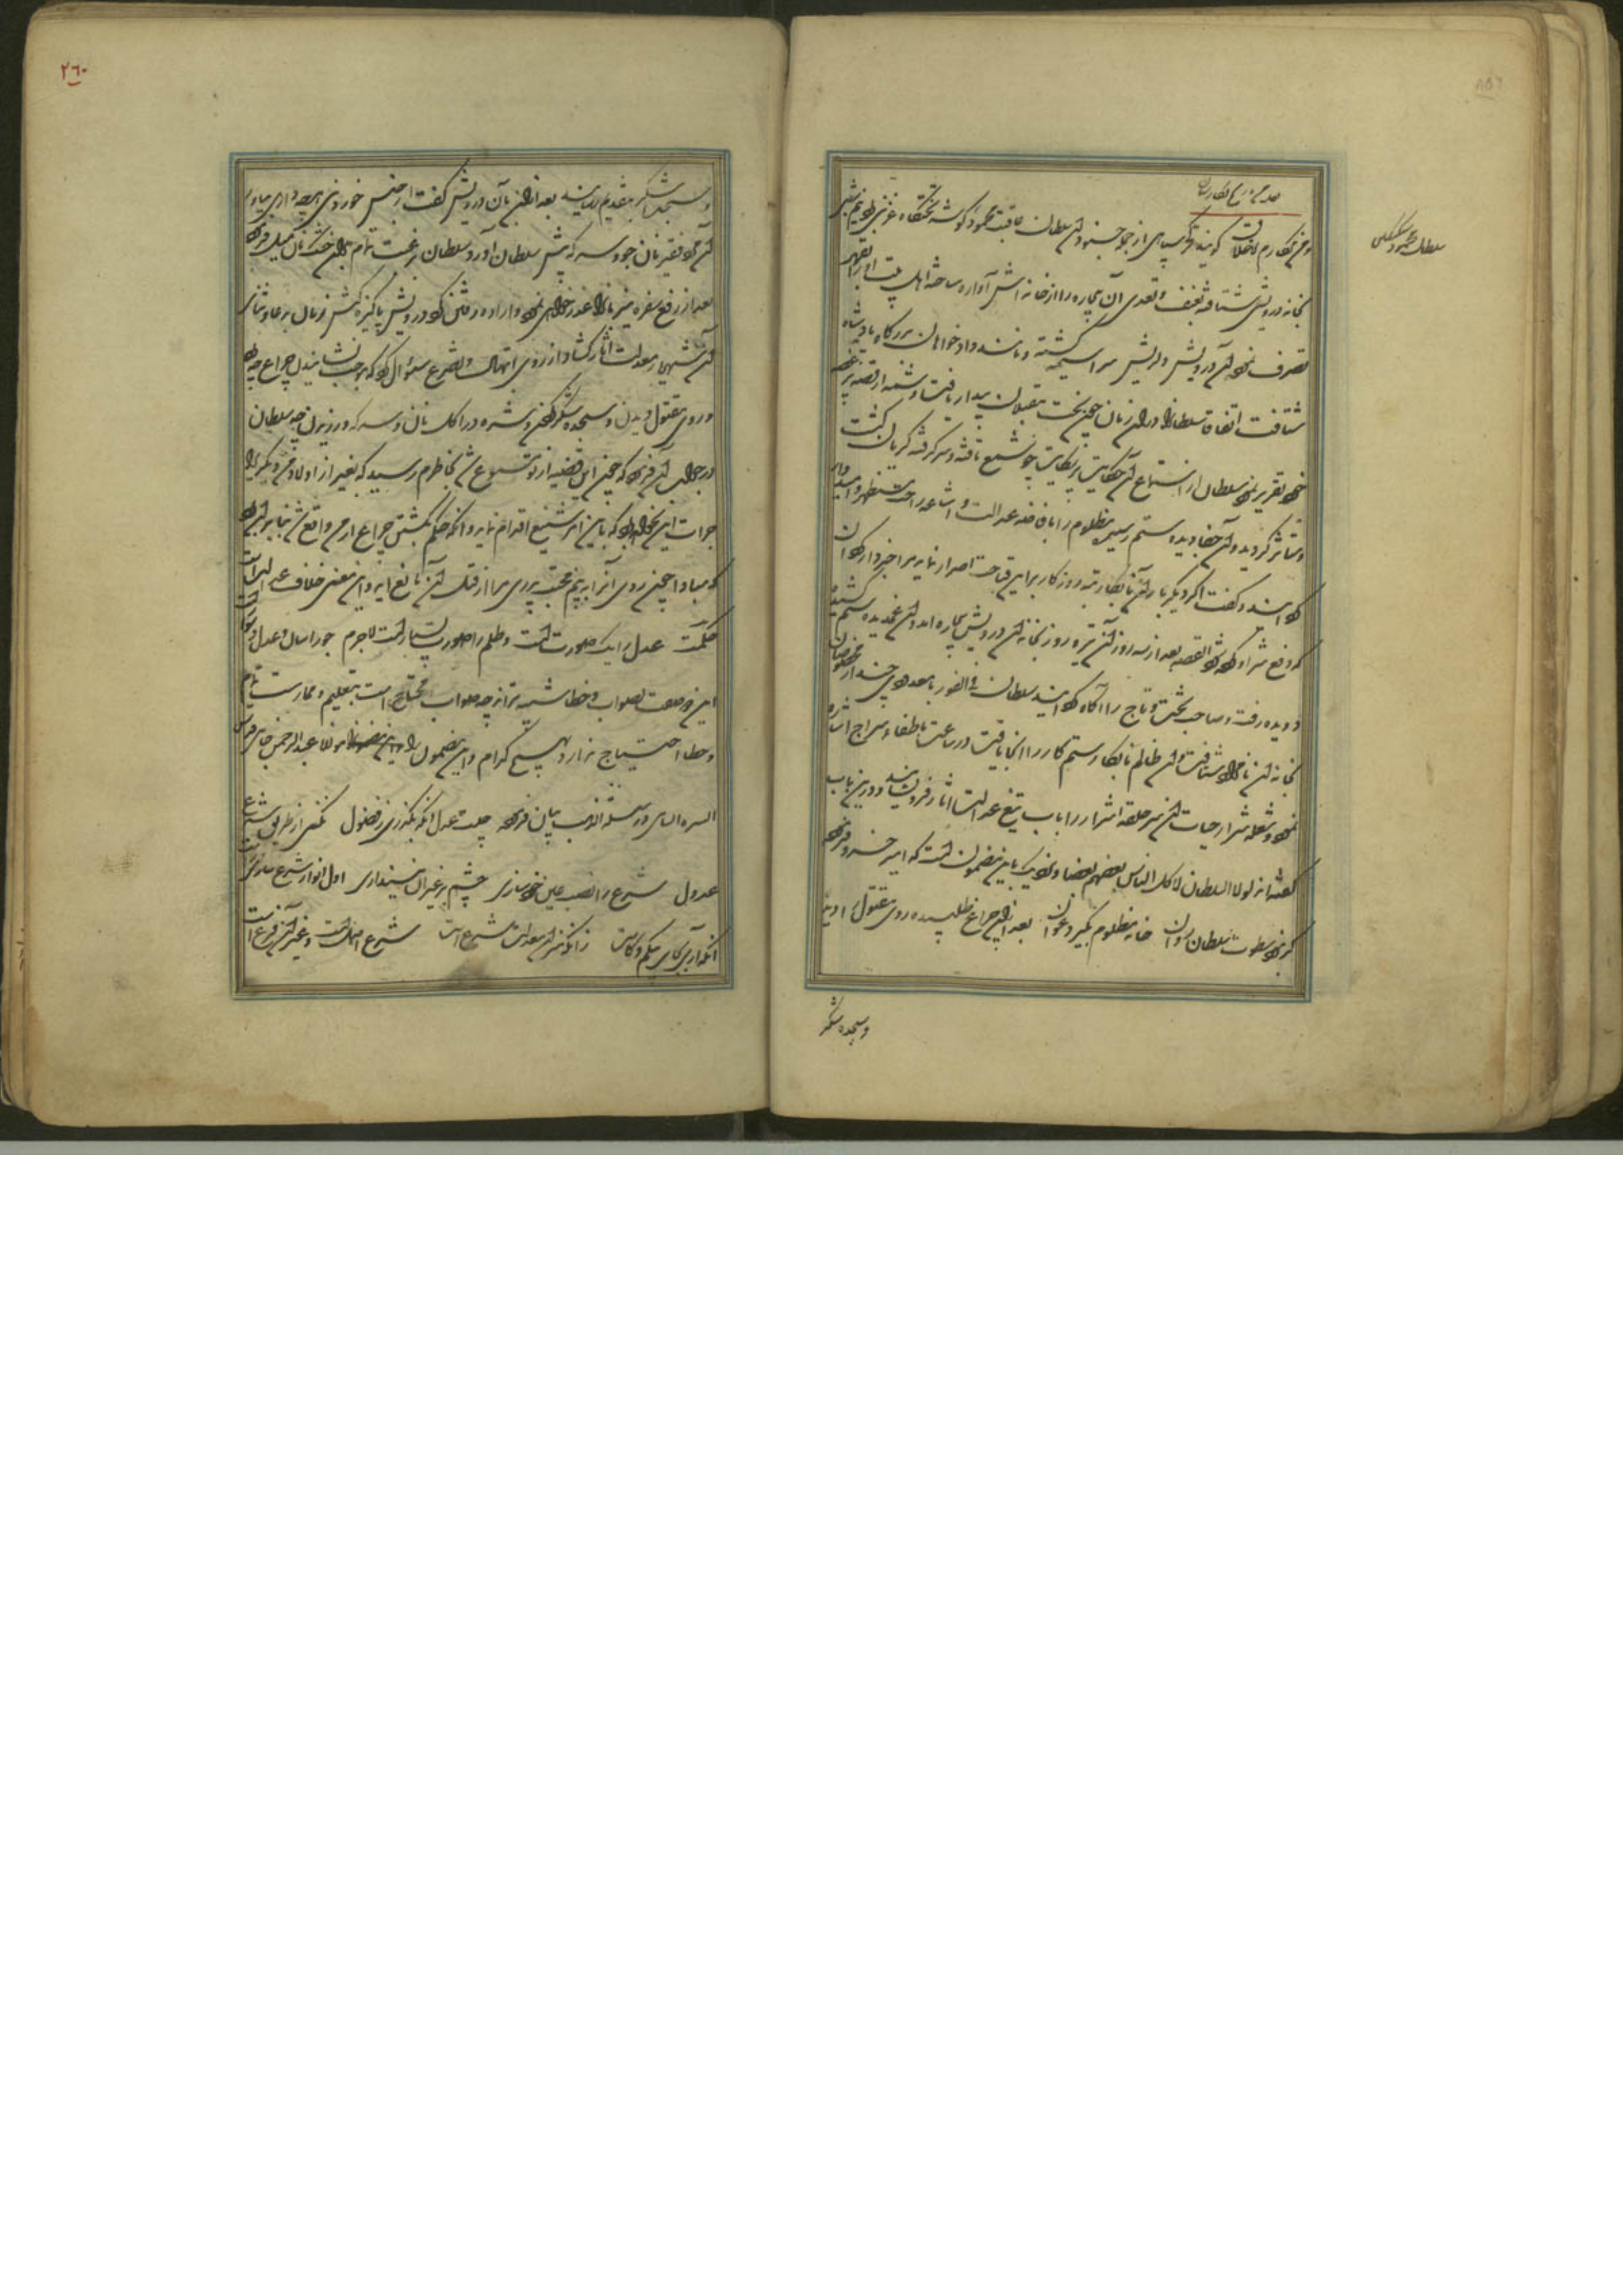 سلطان محمود سبکتکین
ومن مکارم اخلاقه گویند ترکی سپاهی از جمله جند آن سلطان عاقبت محمود گوشه تختگاه غزنی نیم شبی
بخانه درویشی شتافته بعنف و تعدی آن بیچاره را از خانه اش آواره ساخته اهل بیت او را بقهر
تصرف نمود آن درویش دلریش سراسیمه گشته و مانند دادخواهان بدرگاه پادشاه
شتافت اتفاقا سلطان را در آن زمان چون بخت مقبلان بیدار یافت و شمه از قصه پر غصه
خود تقریر نمود سلطان از استماع آن حکایت پر شکایت چون شمع تافته و سرگرفته گریان گشت
و متاثر گردید و آن جفا دیده ستم رسیده مظلوم را بافاضه عدالت و اشاعه راحت مستظهر و امیدوار
گردانید و گفت اگر دیگر بار آن نابکار تبه روزگار براین قباحت اصرار نماید مرا خبردار گردان
که دفع شر او کرده شود القصه بعد از سه روز آن تیره روز بخانه آن درویش بیچاره آمد و آن غمدیده ستم کشیده
دویده رفت و صاحب تخت و تاج را آگاه گردانید سلطان فی الفور با معدودی چند از مخصوصان
بخانه آن نامراد شتافت و آن ظالم نابکار ستم کار را آنجا یافت در ساعت باطفاء سراج اشاره
نموده شعله شرار حیات آن سر حلقه اشرار را بآب تیغ عدالت آثار فرونشاند و درین باب
گفته اند لولا السلطان لاکل الناس بعضهم بعضا و نزدیک باین مضمون است که امیر خسرو فرموده
گر نبود سطوت سلطان روان خانه مظلوم بگیرد عوان بعد از آن چراغ طلبیده روی مقتول را دید
وسجده شکر
۲٦۰
وسجده شکر بتقدیم رسانید بعد از آن بآن درویش گفت از جنس خوردنی هرچه داری بیاور
آن فقیر نان جو و سرکه پیش سلطان آورد سلطان برغبت تمام بآن خشک نان میل فرمود
بعد از رفع سفره میزبانرا عذر خواهی نمود و اراده رفتن کرد درویش پاکیزه کیش زبان بدعا و ثنای
آن شهریار معدلت آثار گشاد از روی ابتهال و تضرع سؤال کرد که موجب نشانیدن چراغ چه بود
و روی مقتول دیدن و سجده شکر کردن و شره در اکل نان و سرکه ورزیدن چه سلطان
در جواب آن فرمود که چون این قضیه از تو مسموع شد بخاطرم رسید که بغیر از اولاد من دیگری را
جرات این نخواهد بود که باین امر شنیع اقدام نماید و آنکه حکم بکشتن چراغ از من واقع شد بنابر آن بود
که مبادا چون روی آنرا به بینم محبت پدری مرا از قتل آن مانع آید و این معنی خلاف عدالت است
حکمت عدل را یک صورت است و ظلم را صورت بسیار است لاجرم جور آسان و عدل دشوار است
این فرصت بصواب و خطا شبیه تر از چه صواب محتاج است بتعلیم و ممارست تمام
و خطا احتیاج ندارد بهیچ کدام و این مضمون را مولانا عبدالرحمن جامی قدس
السره السامی در سلسلة الذهب بیان فرموده چیست عدل آنکه نگذری ز فضول نکنی از طریق شرع
عدول شرع را نصب عین خود سازی چشم بر غیر آن نیندازی اول انوار شرع سازی راست
آنکه آری بجای بی کم و کاست زانکه میزان معدلت شرع است شرع اصل است و غیر آن فرع است